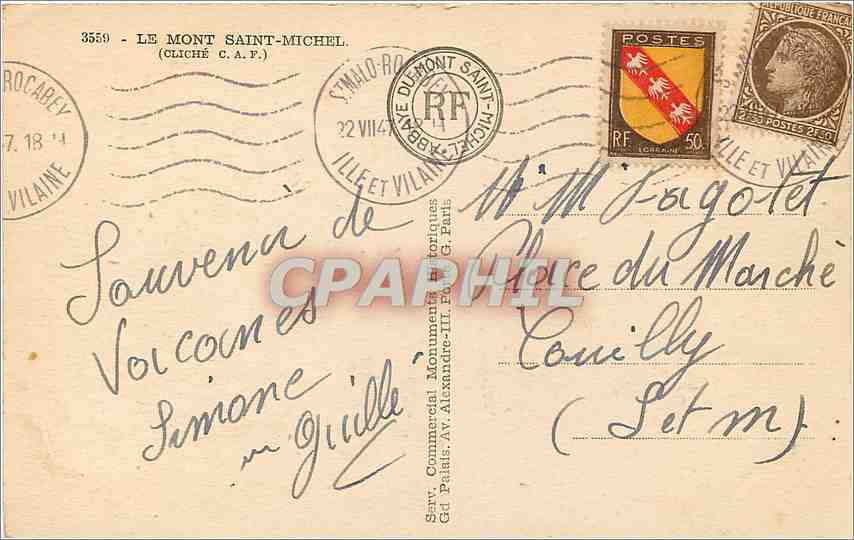 3559 - LE MONT SAINT-MICHEL.
(CLICHÉ C. A. F.)
ROCABEY
7. 18 H
VILAINE
ST MALO-RO
22 VII 47
ILLE ET VILAINE
ABBAYE DU MONT SAINT-MICHEL
RF
POSTES
RF 50c
LORRAINE
RÉPUBLIQUE FRANÇAISE
2F50 POSTES 2F50
ILLE ET VILAINE
Souvenir de
Vacances
Simone
Guillé
CPAPHIL
Serv. Commercial Monuments Historiques
Gd Palais. Av. Alexandre-III. Porte G. Paris
Fagotet
Place du Marché
Couilly
(S et M)